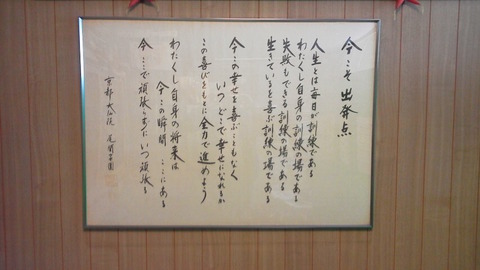 今こそ出発点
人生とは毎日が訓練である
わたくし自身の訓練の場である
失敗もできる訓練の場である
生きているを喜ぶ訓練の場である
今この幸せを喜ぶこともなく
いつどこで幸せになれるか
この喜びをもとに全力で進めよう
わたくし自身の将来は
今この瞬間ここにある
今ここで頑張らずにいつ頑張る
京都大仙院 尾関宗園